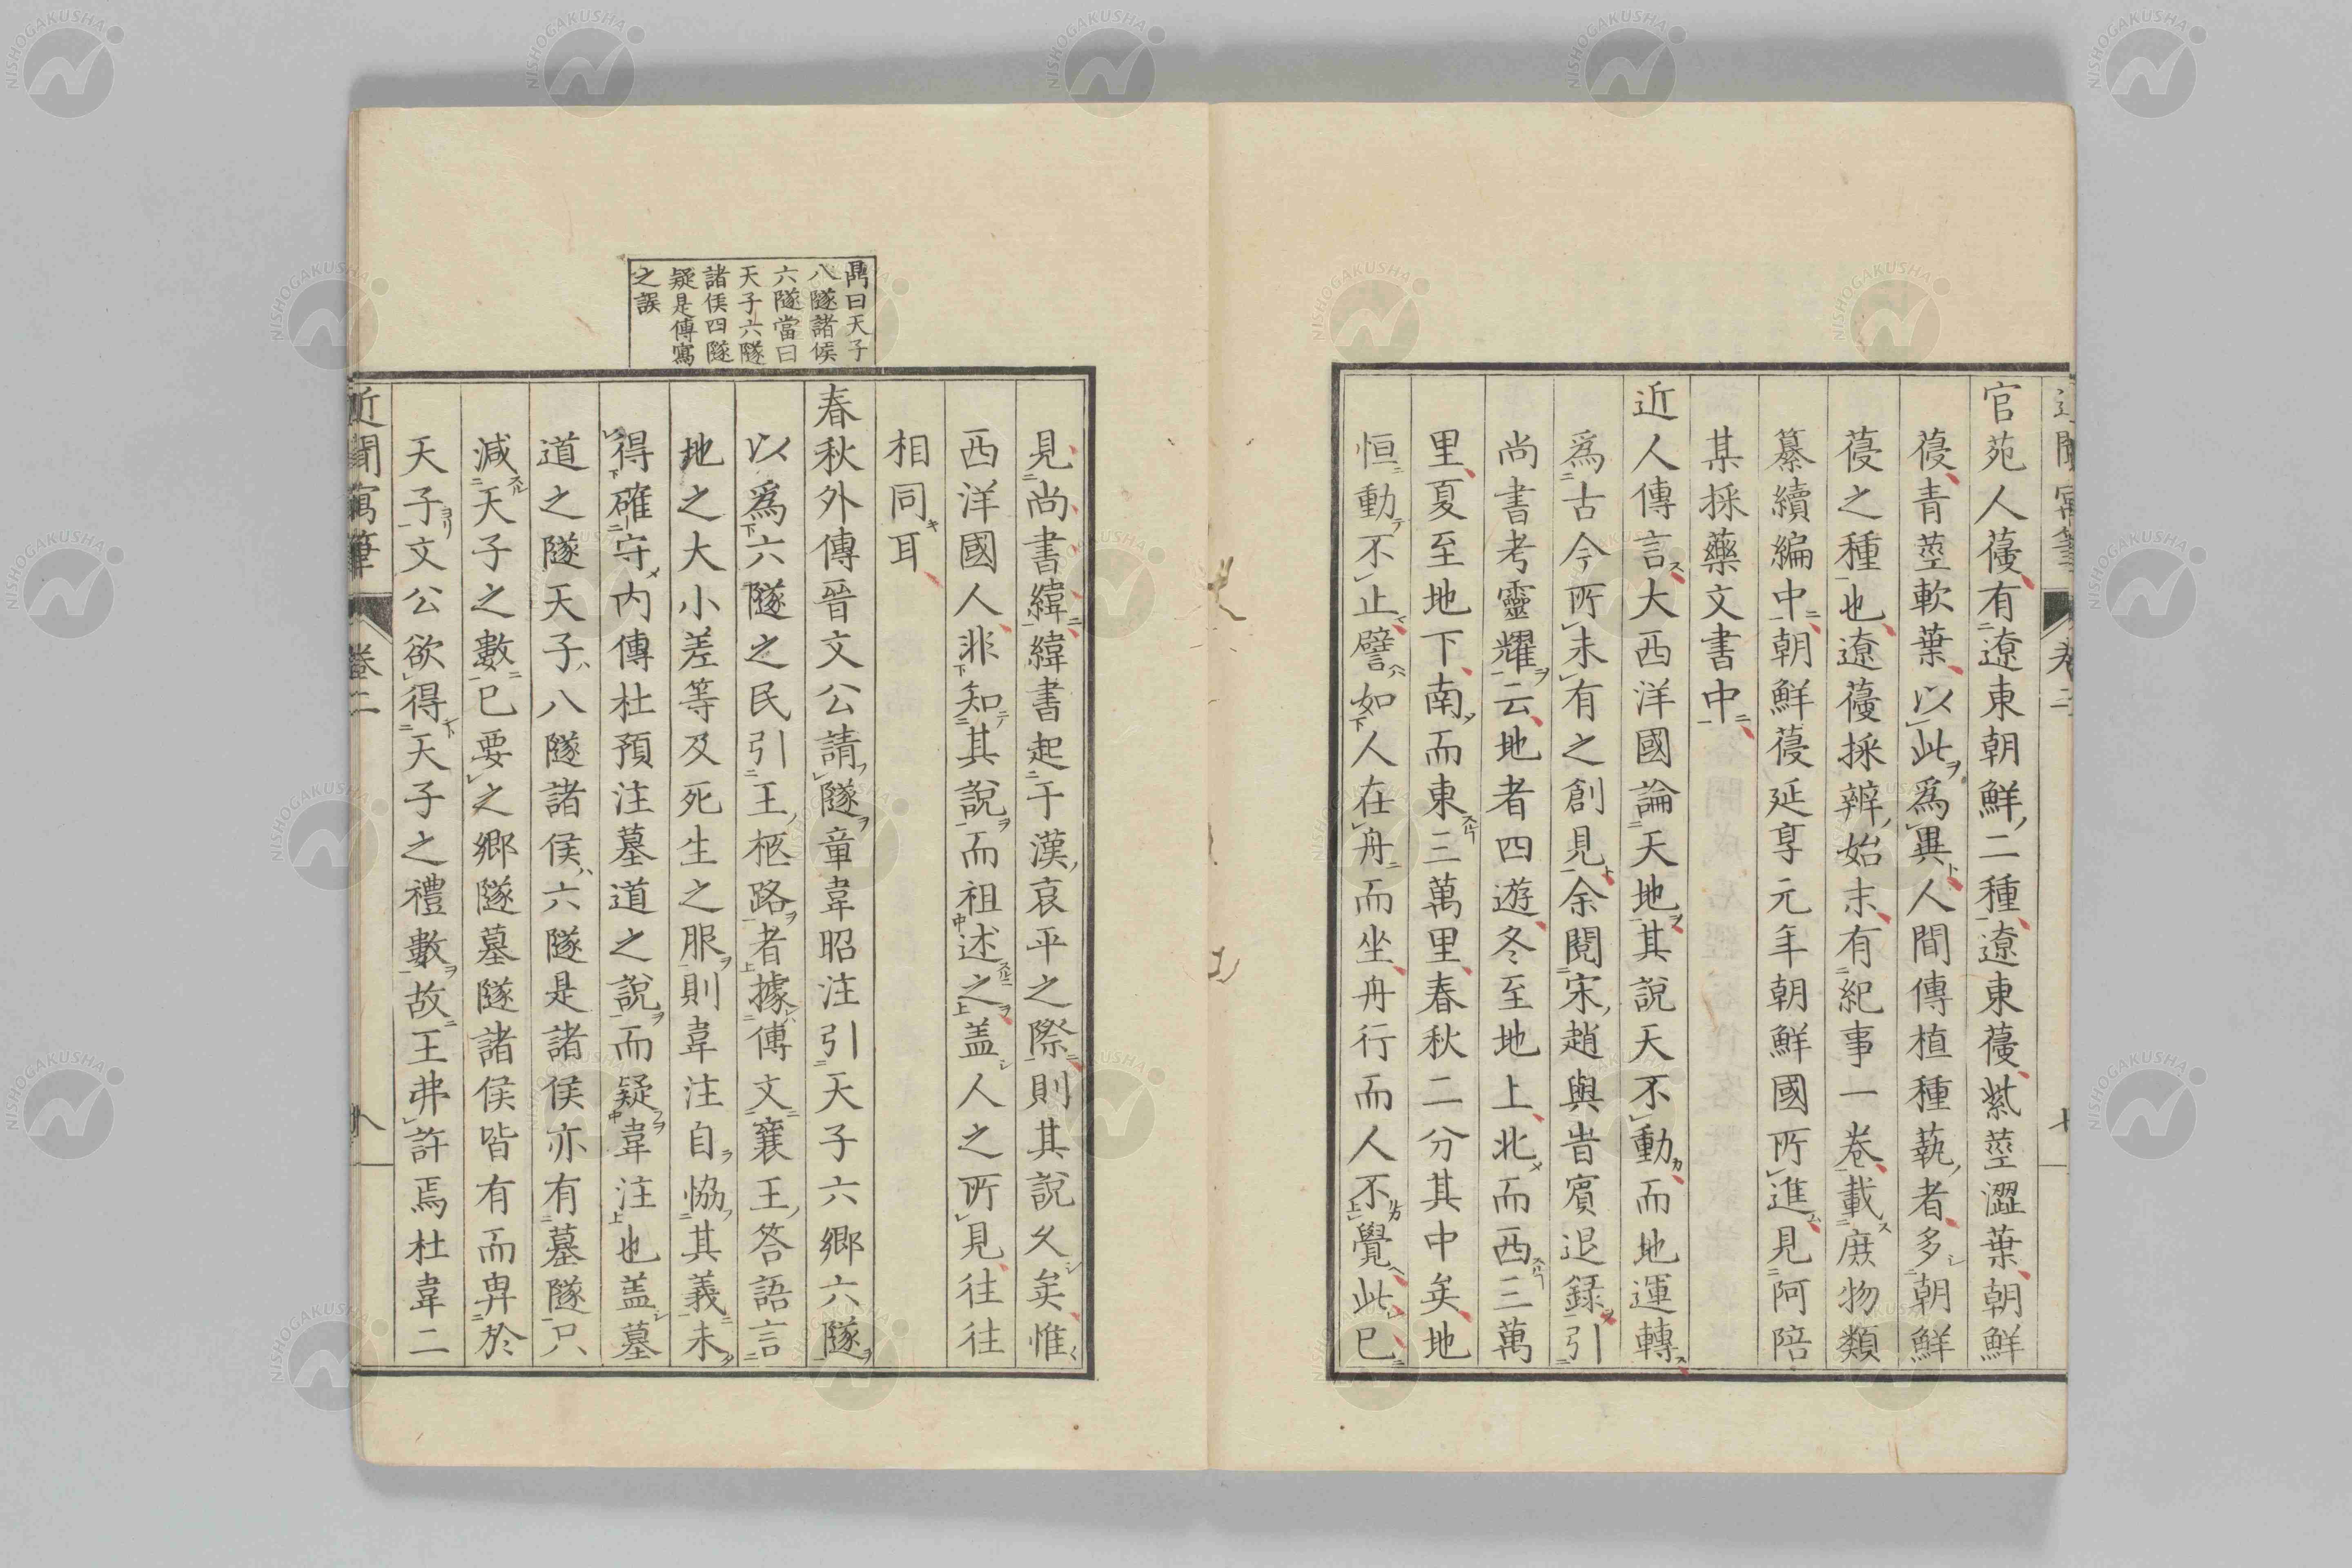 官苑人葠有遼東朝鮮二種遼東葠紫莖澀葉朝鮮
葠青莖軟葉以此為異人間傳植種蓺者多朝鮮
葠之種也遼葠採辨始末有紀事一卷載庶物類
纂續編中朝鮮葠延享元年朝鮮國所進見阿陪
某採藥文書中
近人傳言大西洋國論天地其說天不動而地運轉
爲古今所未有之創見余閱宋趙與旹賓退録引
尚書考靈耀云地者四遊冬至地上北而西三萬
里夏至地下南而東三萬里春秋二分其中矣地
恒動不止譬如人在舟而坐舟行而人不覺此已
見尚書緯緯書起于漢哀平之際則其說久矣惟
西洋國人非知其說而祖述之盖人之所見往往
相同耳
鼎曰天子
八隧諸侯
六隧當曰
天子六隧
諸侯四隧
疑是傳寫
之誤
春秋外傳晉文公請隧章韋昭注引天子六鄉六隧
以爲六隧之民引王柩路者據傳文襄王答語言
地之大小差等及死生之服則韋注自恊其義未
得確守内傳杜預注墓道之說而疑韋注也盖墓
道之隧天子八隧諸侯六隧是諸侯亦有墓隧只
減天子之數已要之鄉隧墓隧諸侯皆有而畀於
天子文公欲得天子之禮數故王弗許焉杜韋二
近聞寓筆 卷二 八